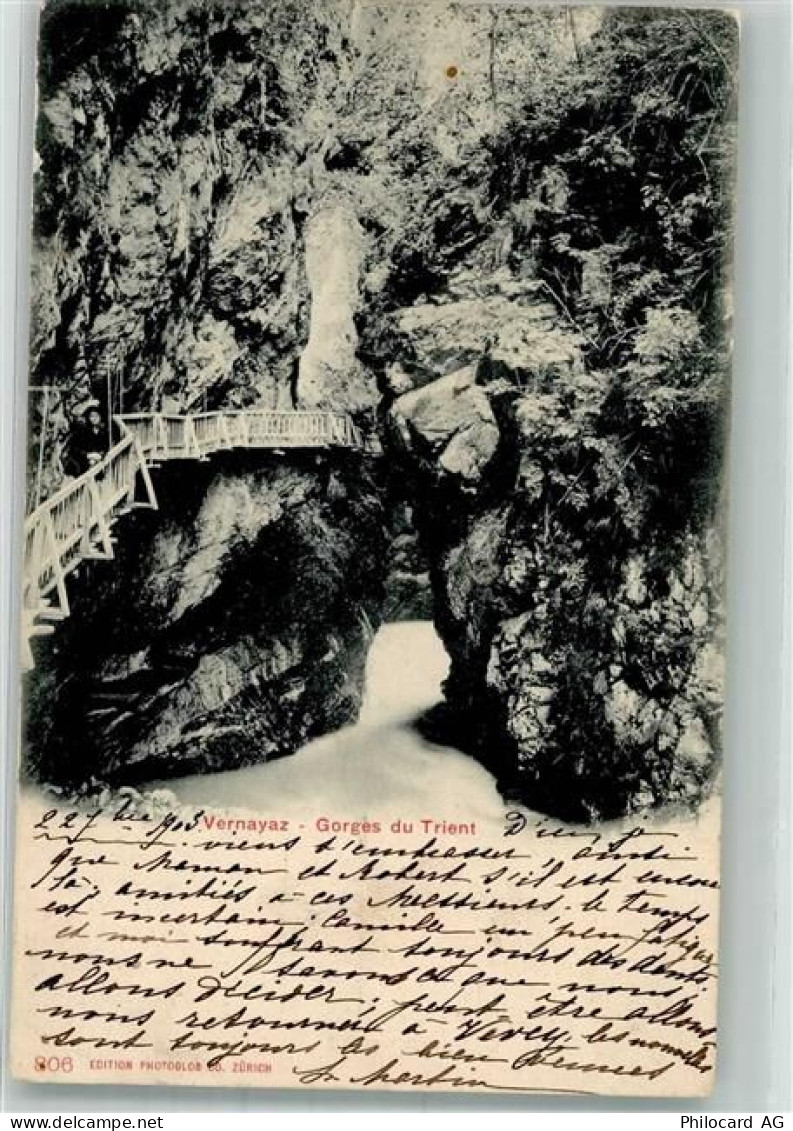 22 7bre 1903. Vernayaz - Gorges du Trient D'ici je
viens t'embrasser, ainsi
que Maman et Robert s'il est encore
là. amitiés à ces Messieurs. le temps
est incertain. Camille un peu fatigué
et moi souffrant toujours des dents
nous ne savons ce que nous
allons décider, peut être allons
nous retourner à Vevey. les nouvelles
sont toujours les bien bonnes
St Martin
806 EDITION PHOTOGLOB CO. ZÜRICH
Philocard AG